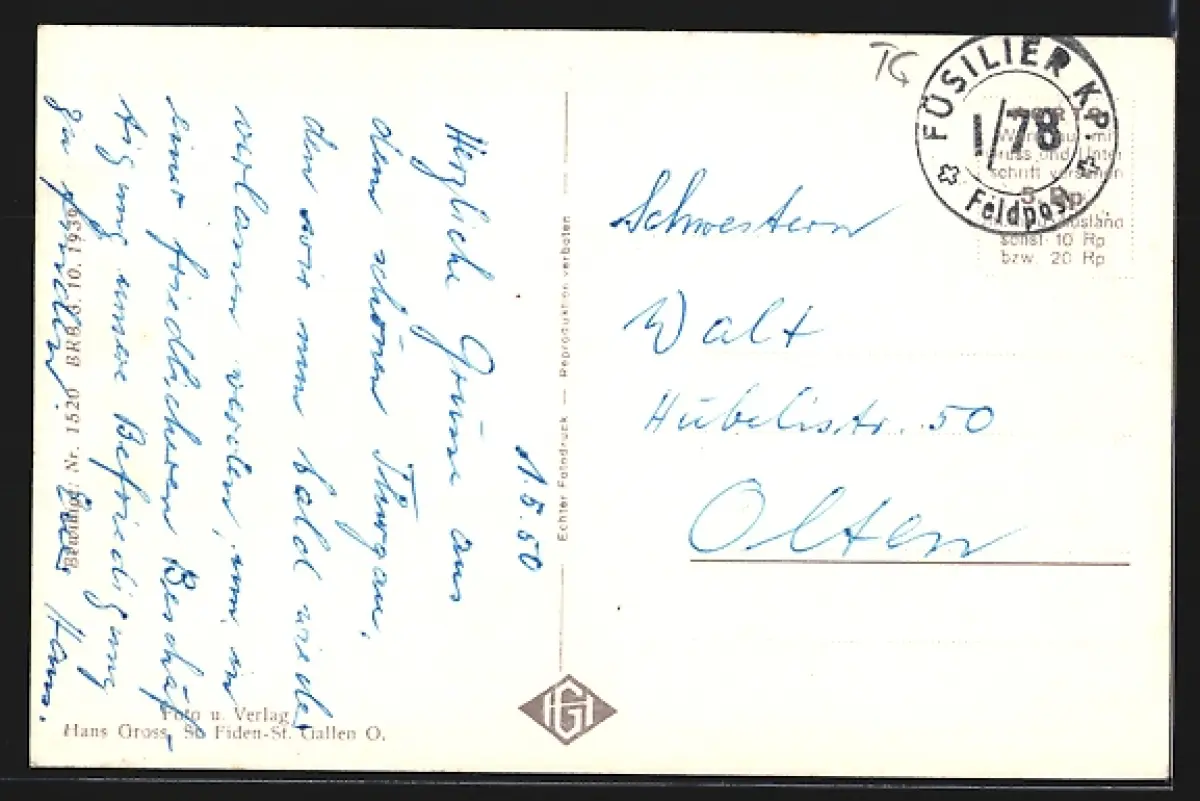 1.5.50
Herzliche Grüsse aus
dem schönen Thurgau,
den wir nun bald wieder
verlassen werden, um in
einer friedlicheren Beschäf-
tigung unsere Befriedigung
zu finden!
Euer Hans.
Bewilligt: Nr. 1520 BRB 3.10.1939
Foto u. Verlag
Hans Gross, St. Fiden-St. Gallen O.
Echter Fotodruck — Reproduktion verboten
HG
TG
FÜSILIER KP.
I/78
Feldpost
mit
Gruss und Unter
schrift versehen
5 Rp
Ausland
sonst 10 Rp
bzw. 20 Rp
Schwestern
Walt
Hübelistr. 50
Olten